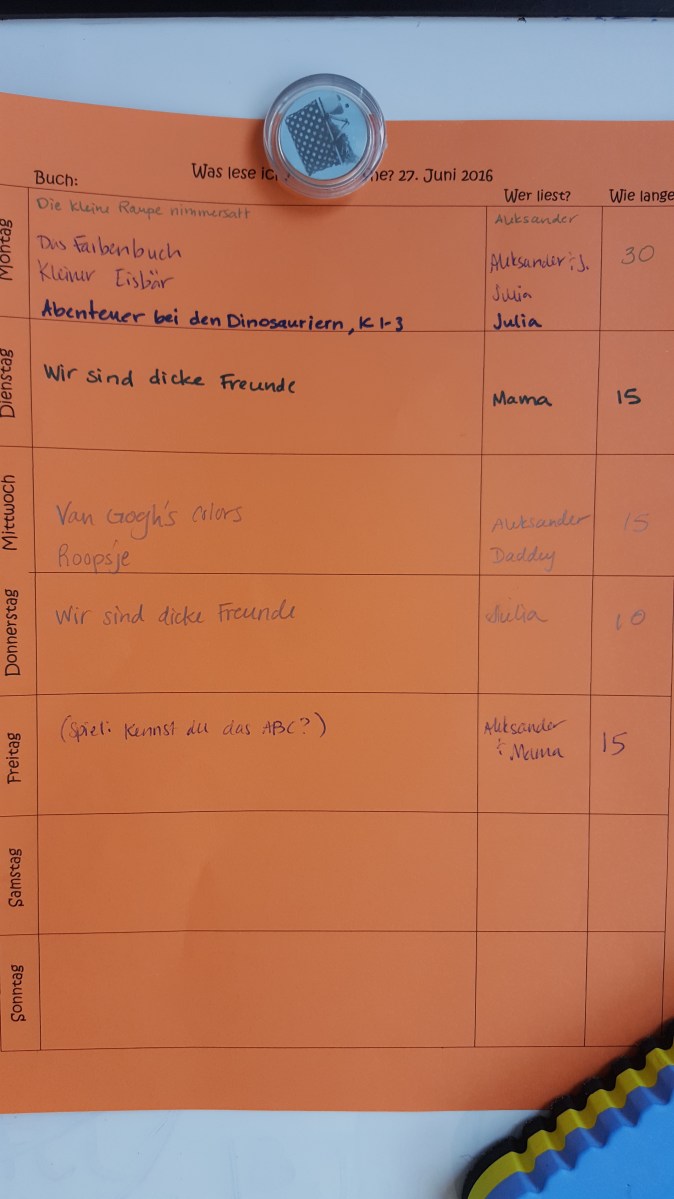 Was lese ic ne? 27. Juni 2016
Buch: Wer liest? Wie lange
Montag
Die kleine Raupe nimmersatt Aleksander
Das Farbenbuch Aleksander & J. 30
Kleiner Eisbär Julia
Abenteuer bei den Dinosauriern, K 1-3 Julia
Dienstag
Wir sind dicke Freunde Mama 15
Mittwoch
Van Gogh's Colors Aleksander 15
Roopsje Daddy
Donnerstag
Wir sind dicke Freunde Julia 10
Freitag
(Spiel: Kennst du das ABC?) Aleksander 15
& Mama
Samstag
Sonntag